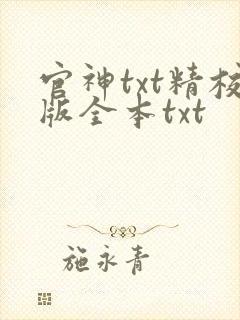 官神txt精校
版全本txt
施永青